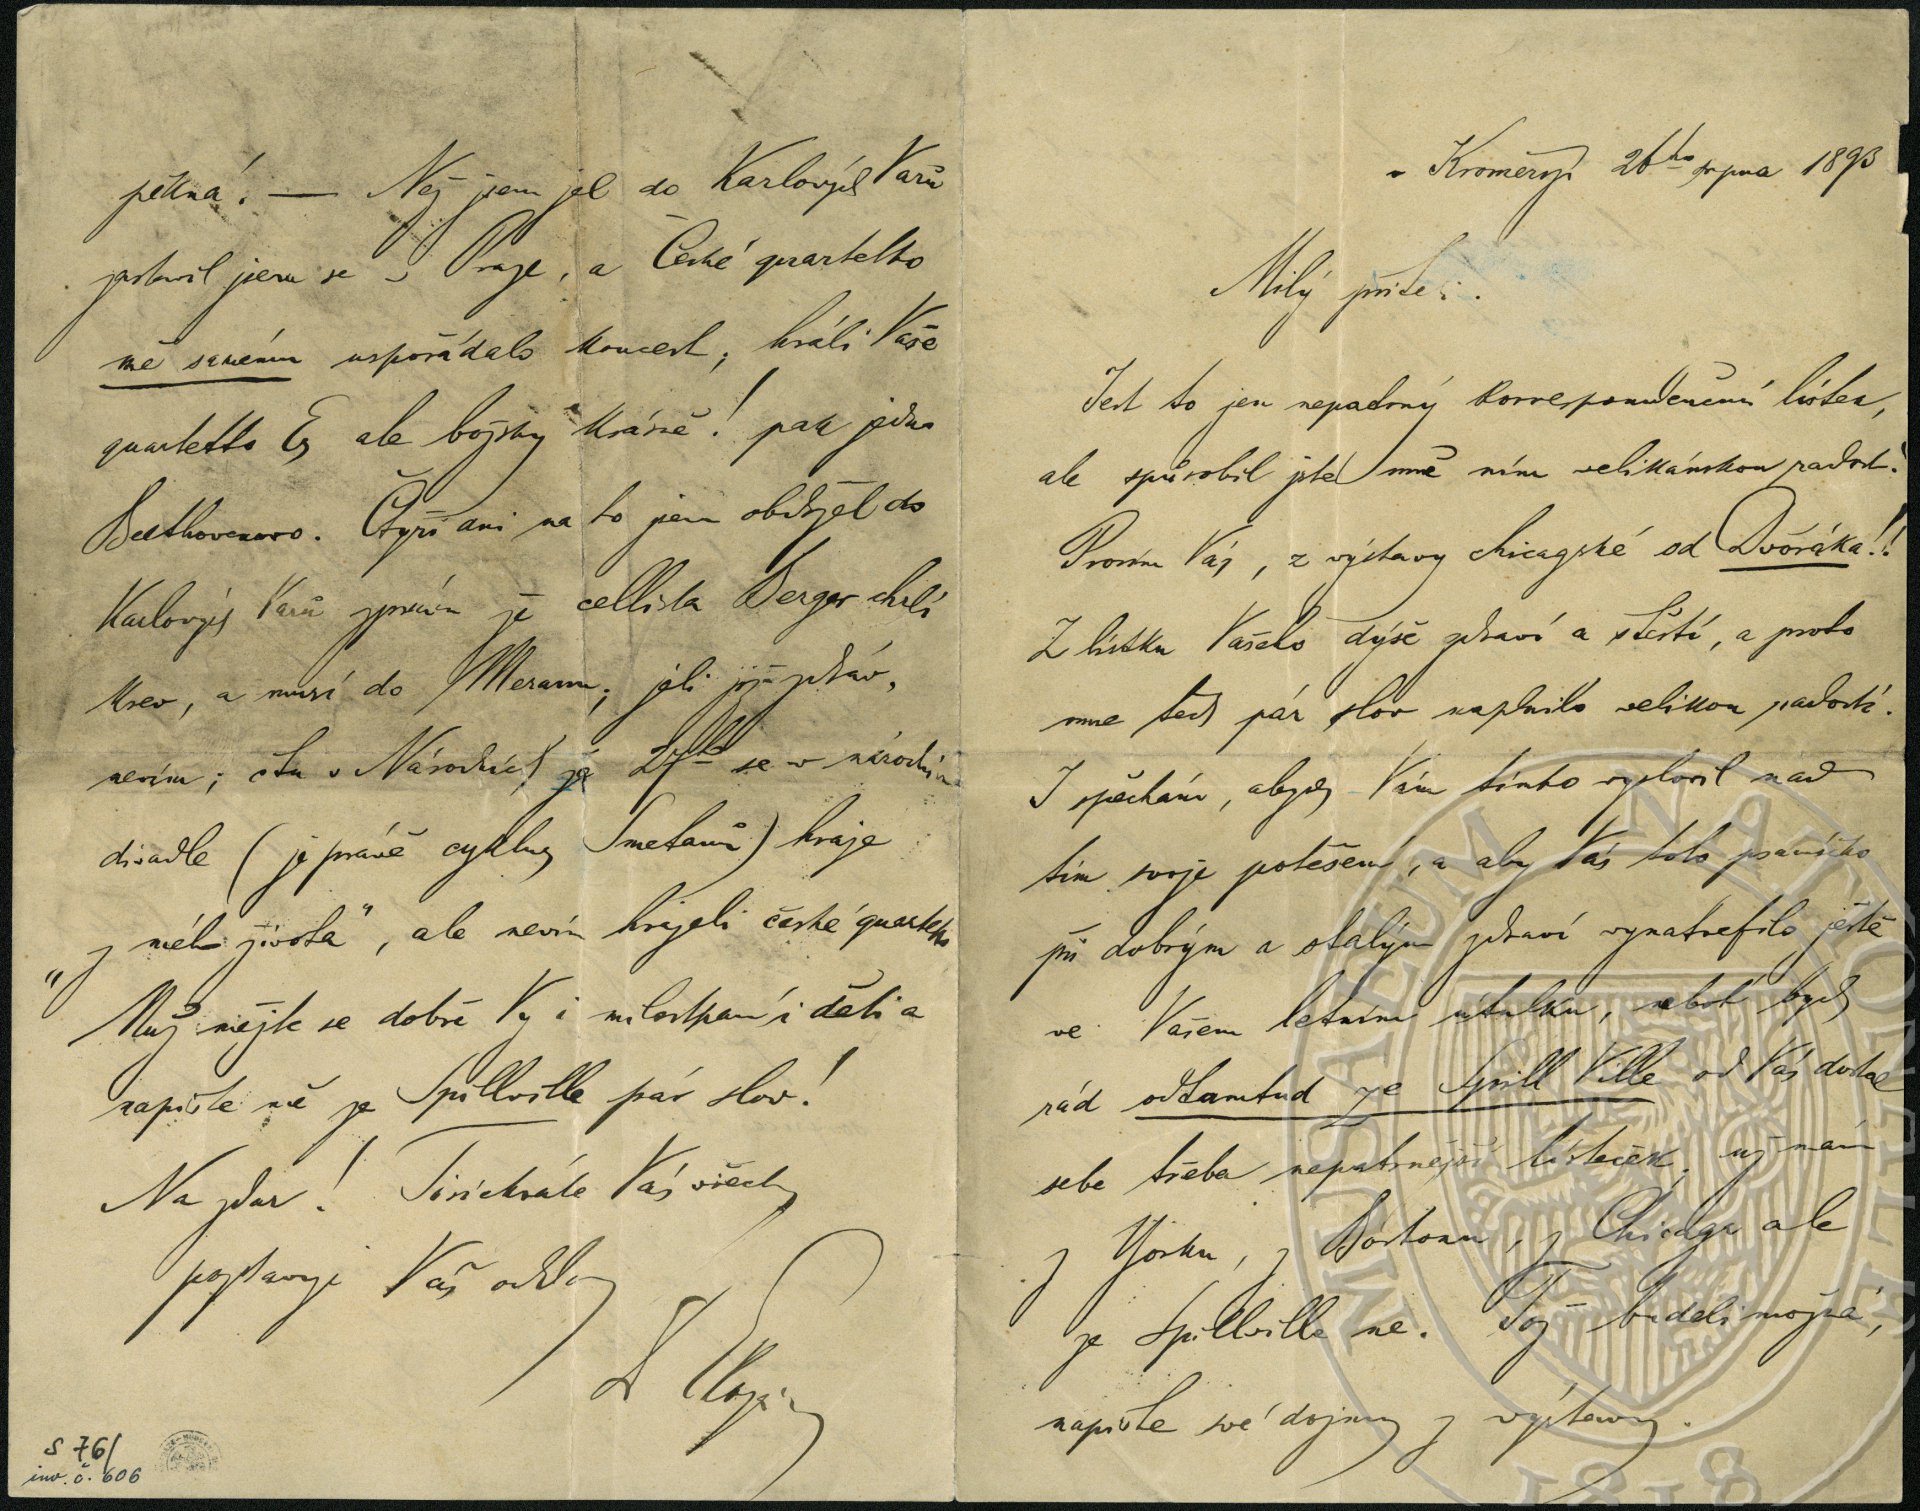 v Kroměříži 26ho srpna 1893
Milý příteli.
Jest to jen nepatrný korrespondenční lístek,
ale spůsobil jste mně ním velikánskou radost.
Prosím Vás, z výstavy chicagské od Dvořáka!!
Z lístku Vašeho dýše zdraví a štěstí, a proto
mne těch pár slov naplnilo velikou radostí.
I spěchám, abych Vám tímto vyslovil nad
tím svoje potěšení, a aby Vás toto psaníčko
při dobrým a stalým zdraví vynatrefilo ještě
ve Vašem letním útulku, neboť bych
rád odtamtud ze Spill Ville od Vás dostal
sebe třeba nepatrnější lísteček; už mám
z Yorku, z Bostonu, z Chicaga ale
ze Spillville ne. Tož budeli možná,
napište své dojmy z výstavy.
pěkná! — Než jsem jel do Karlových Varů
zastavil jsem se v Praze, a České quartetto
mě samému uspořádalo koncert; hráli Vaše
quartetto Es ale božsky krásně! pak jedno
Beethovenovo. Čtyři dni na to jsem obdržel do
Karlových Varů zprávu že cellista Berger chrlí
krev, a musí do Meranu; jeli již zdráv,
nevím; čtu v Národních že 27ho se v národním
divadle (je právě cyklus Smetanův) hraje
„z mého života", ale nevím hrajeli české quartetto
Nuž mějte se dobře Vy i milostpaní i děti a
napište mě ze Spillville pár slov!
Na zdar! Tisíckráte Vás všechny
pozdravuje Váš oddaný
S 76/
inv. č. 606
MUSAEUM NATIONALE
1818